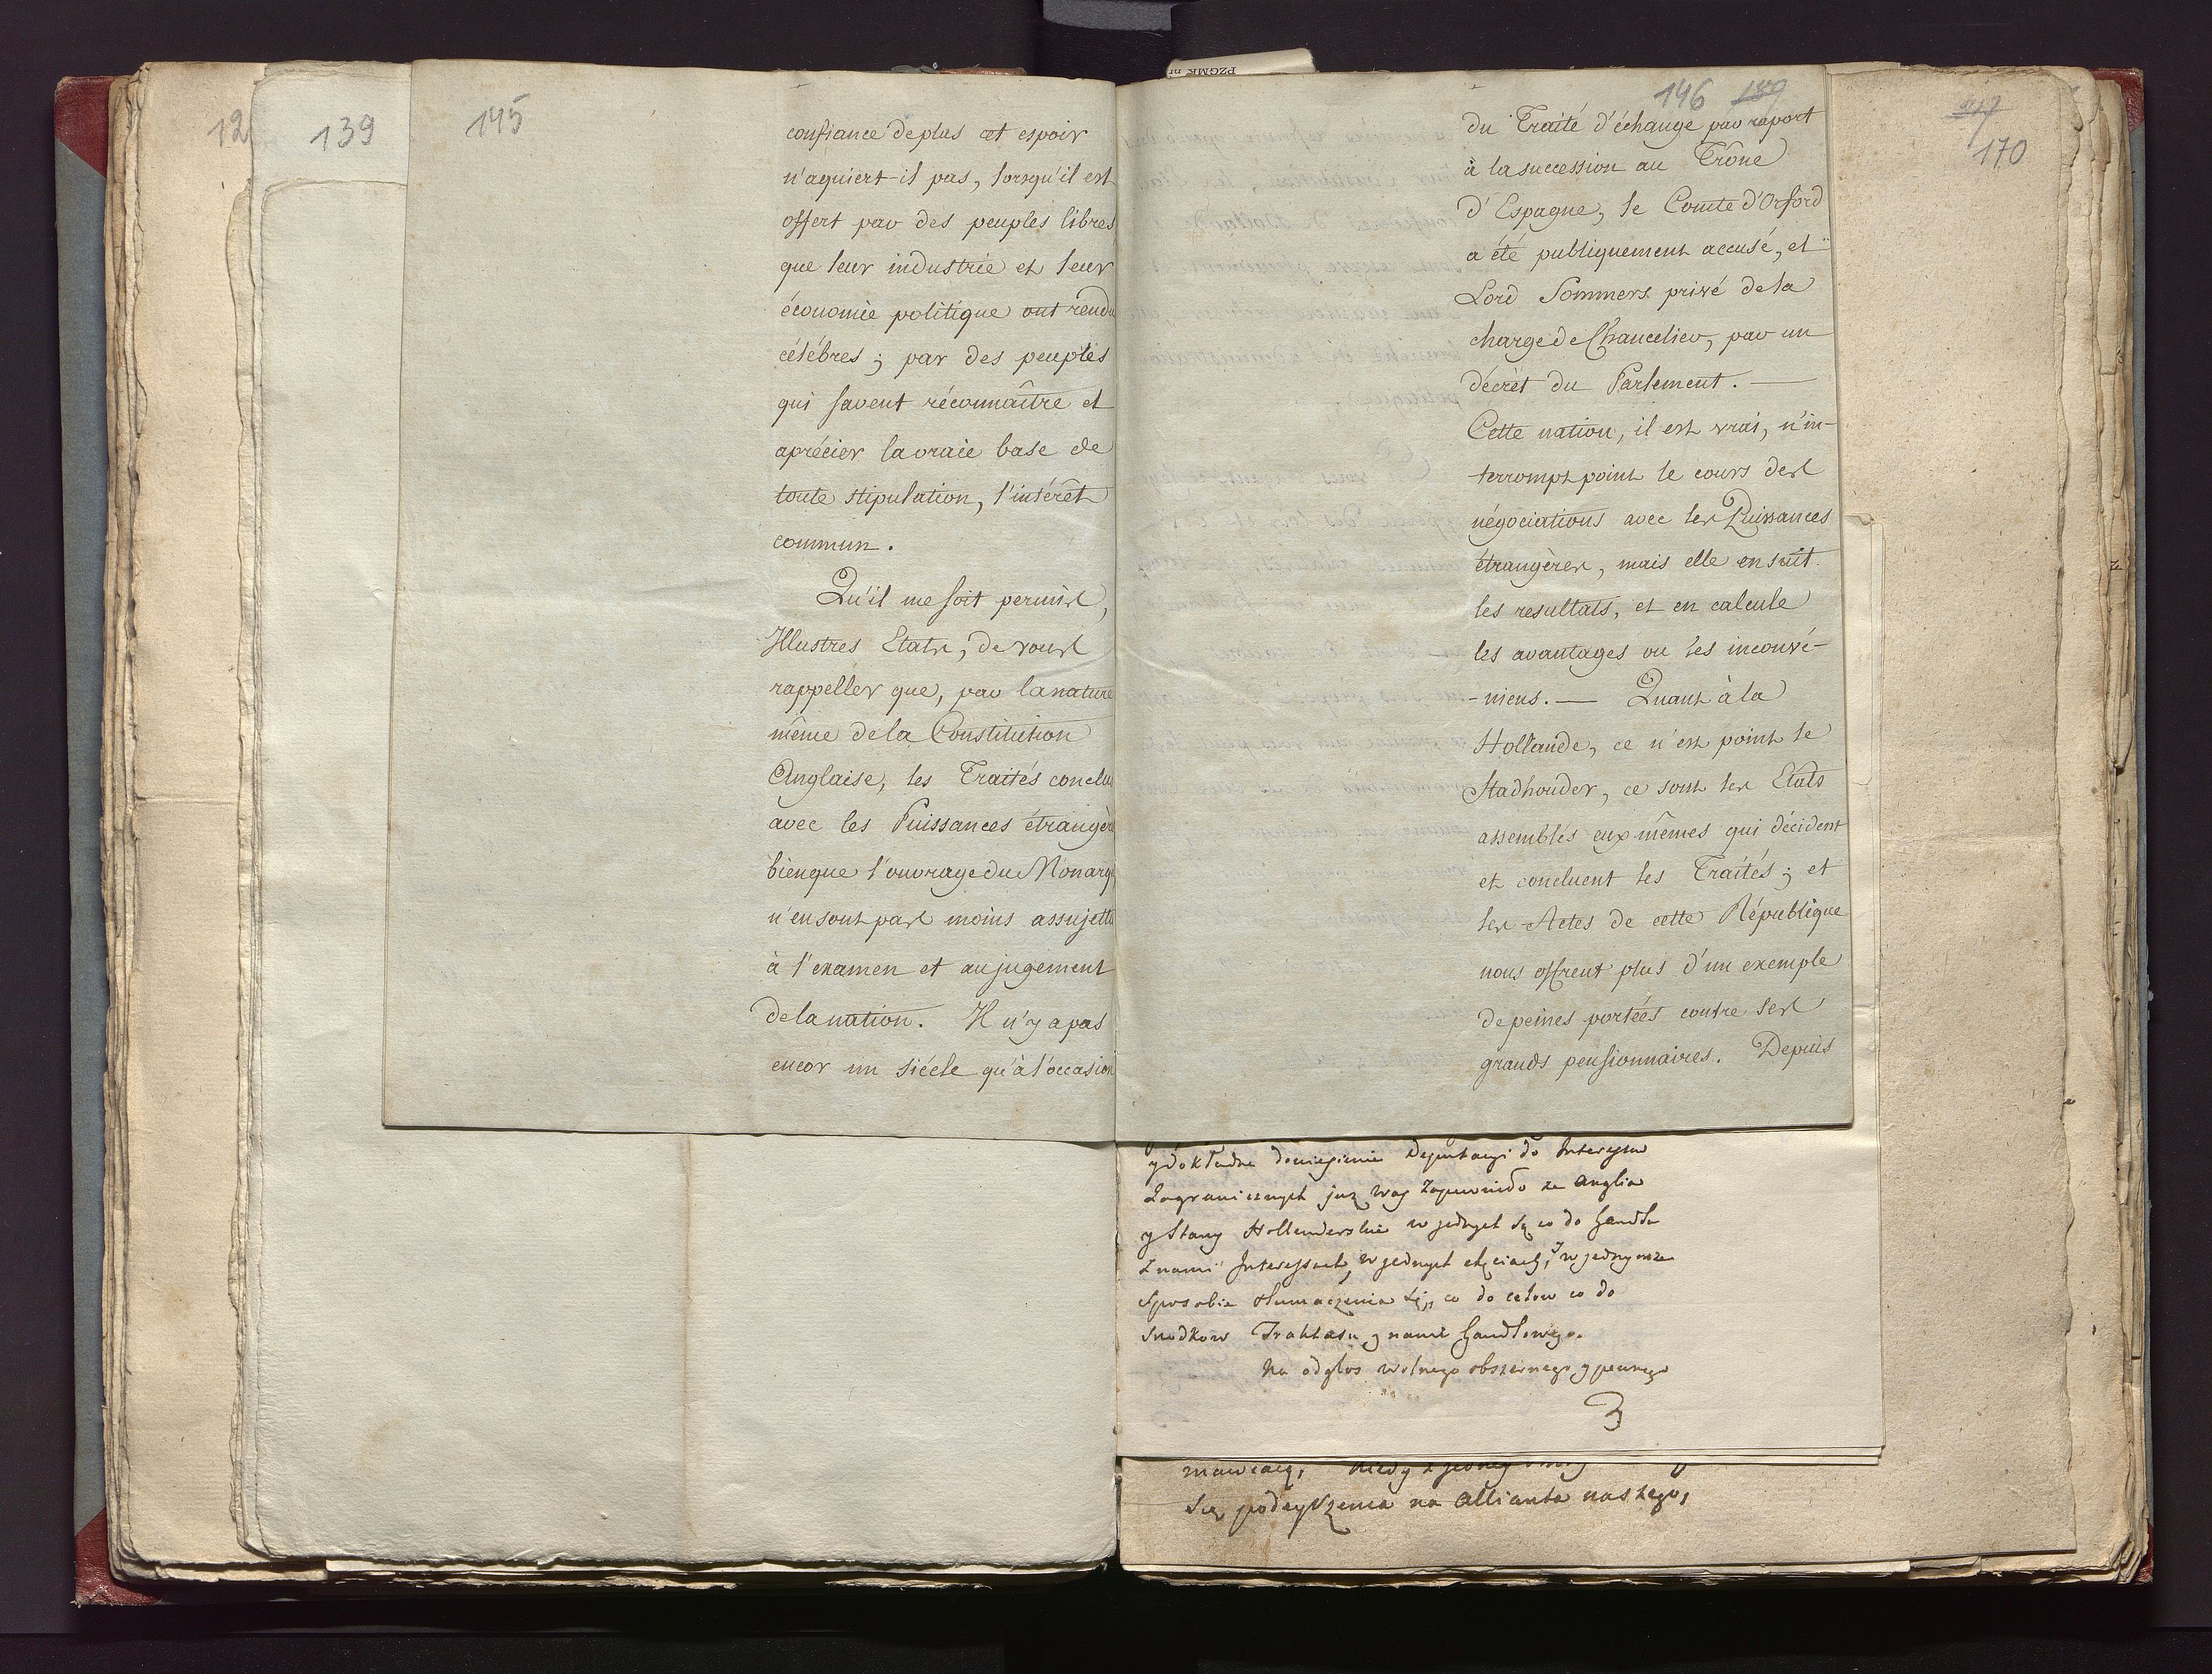 12
139
145
confiance de plus cet espoir
n'aquiert-il pas, lorsqu'il est
offert par des peuples libres
que leur industrie et leur
économie politique ont rendu
célébres ; par des peuples
qui savent réconnaître et
aprécier la vraie base de
toute stipulation, l'intérêt
commun.
Qu'il me soit permis,
Illustres Etats, de vous
rappeller que, par la nature
même de la Constitution
Anglaise, les Traités conclus
avec les Puissances étrangèr
bien que l'ouvrage du Monarq
n'en sont pas moins assujetti
à l'examen et au jugement
de la nation. Il n'y a pas
encor un siécle qu'à l'occasion
146 139
du Traité d'échange par raport
à la succession au Trône
d'Espagne, le Comte d'Orford
a été publiquement accusé, et
Lord Sommers privé de la
charge de Chancelier, par un
décrèt du Parlement. —
Cette nation, il est vrai, n'in-
terrompt point le cours des
négociations avec les Puissances
étrangères, mais elle en suit
les resultats, et en calcule
les avantages ou les inconvé-
-niens. — Quant à la
Hollande, ce n'est point le
Stadhouder, ce sont les Etats
assemblés eux mêmes qui décident
et concluent les Traités ; et
les Actes de cette République
nous offrent plus d'un exemple
de peines portées contre ses
grands pensionnaires. Depuis
170
y dokładne doniesienie Deputacyi do Interesów
Zagranicznych juz Was Zapewniło ze Anglia
y Stany Hollenderskie w jednych są co do handlu
z nami Interessach, w jednych chęciach, y w jednymże
sposobie tłumaczenia się, co do celow co do
srodkow Traktatu z nami handlowego.
Na odgłos wolnego obszernego y pewnego
3
mawiaią, kiedy z jedney
się podeyrzenia na Allianta naszego,